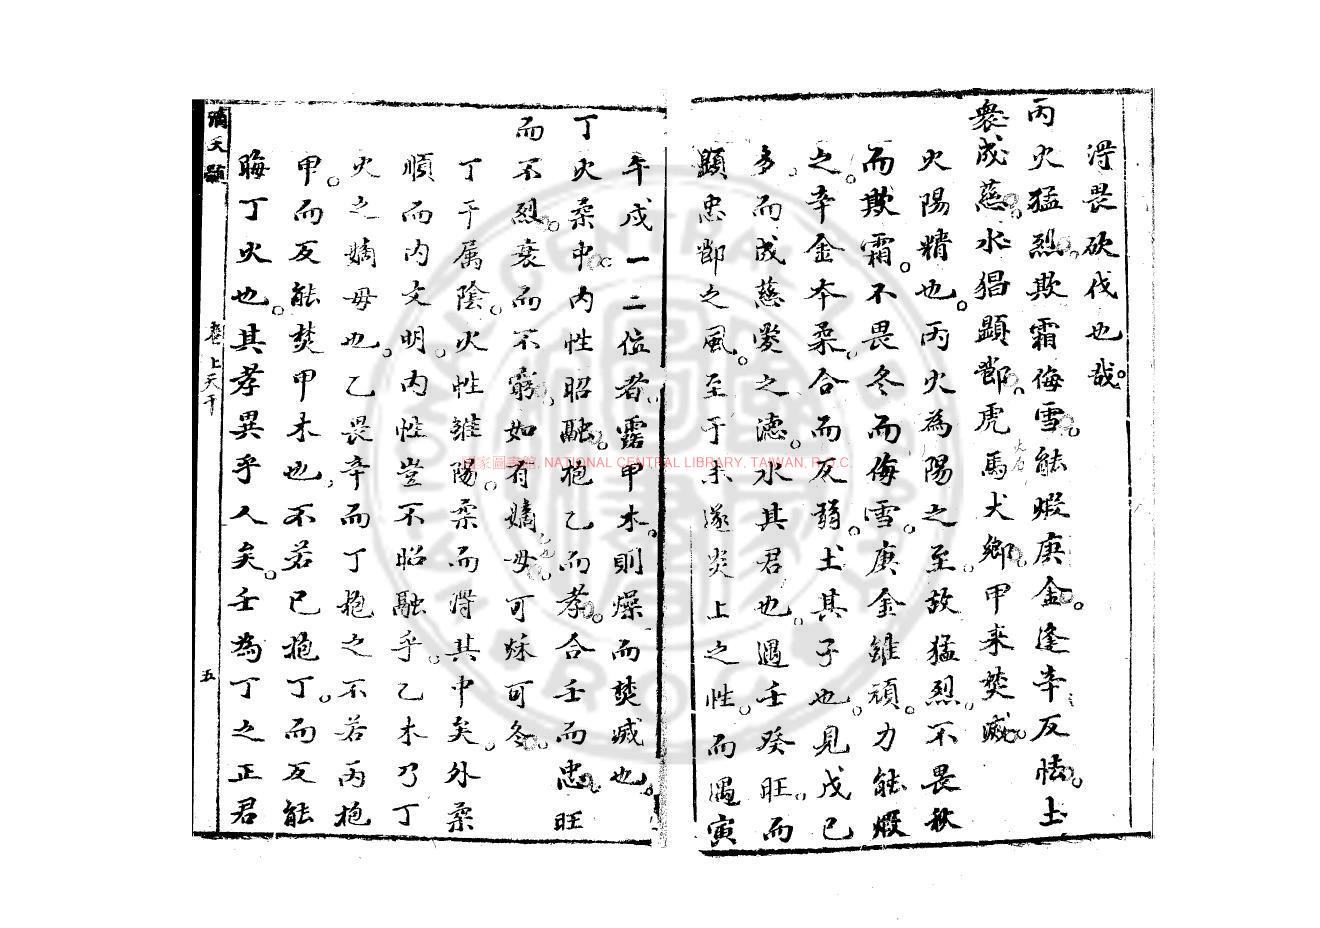 淂畏砍伐也哉
丙火猛烈欺霜侮雪能煅庚金逢辛反怯土
衆成慈水猖顯節虎馬犬鄉甲来焚滅
火陽精也丙火為陽之至故猛烈不畏秋
而欺霜不畏冬而侮雪庚金雖頑力能煅
之辛金本柔合而反弱土其子也見戊己
多而成慈愛之德水其君也遇壬癸旺而
顕忠節之風至于未遂炎上之性而遇寅
午戍一二位者露甲木則燥而焚滅也
丁火柔中内性昭融抱乙而孝合壬而忠旺
而不烈衰而不窮如有嫡母可秌可冬
丁干属陰火性雖陽柔而淂其中矣外柔
順而内文明内性豈不昭融乎乙木乃丁
火之嫡母也乙畏辛而丁抱之不若丙抱
甲而反能焚甲木也不若己抱丁而反能
晦丁火也其孝異乎人矣壬為丁之正君
滴天髓
卷上天干
五
國家圖書館, NATIONAL CENTRAL LIBRARY, TAIWAN, R.O.C.